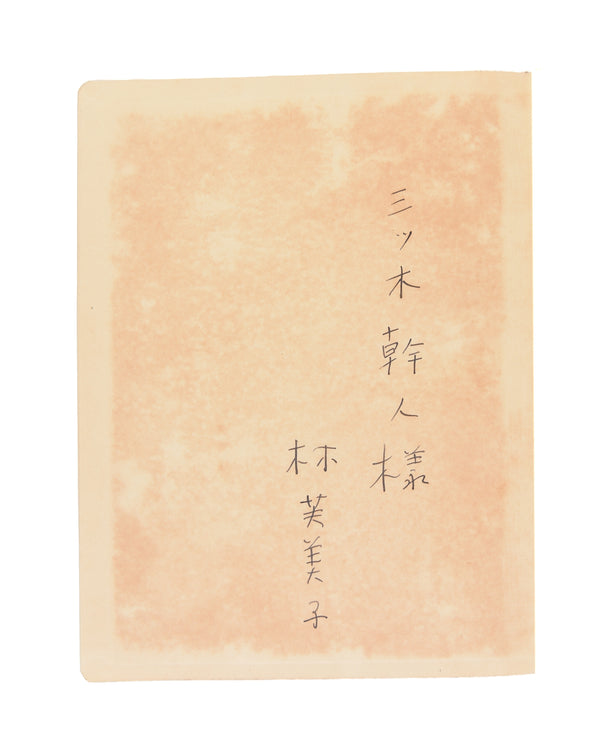 三ッ木幹人樣
林芙美子